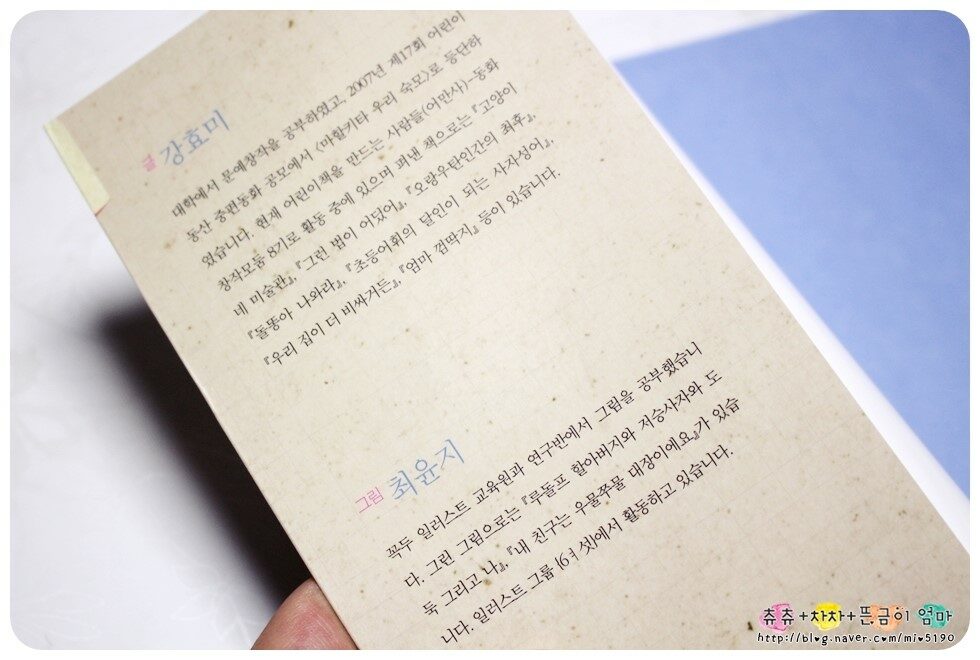 글 강효미
대학에서 문예창작을 공부하였고, 2007년 제17회 어린이
동산 중편동화 공모에서 〈마할키타 우리 숙모〉로 등단하
였습니다. 현재 어린이책을 만드는 사람들(어만사)-동화
창작모둠 8기로 활동 중에 있으며 펴낸 책으로는 『고양이
네 미술관』, 『그런 법이 어딨어』, 『오랑우탄인간의 최후』,
『돌똥아 나와라』, 『초등어휘의 달인이 되는 사자성어』,
『우리 집이 더 비싸거든』, 『엄마 껌딱지』 등이 있습니다.
그림 최윤지
꼭두 일러스트 교육원과 연구반에서 그림을 공부했습니
다. 그린 그림으로는 『루돌프 할아버지와 저승사자와 도
둑 그리고 나』, 『내 친구는 우물쭈물 대장이에요』가 있습
니다. 일러스트 그룹 16너 셋에서 활동하고 있습니다.
츄츄+차차+뜬금이 엄마
http://blog.naver.com/mio5190